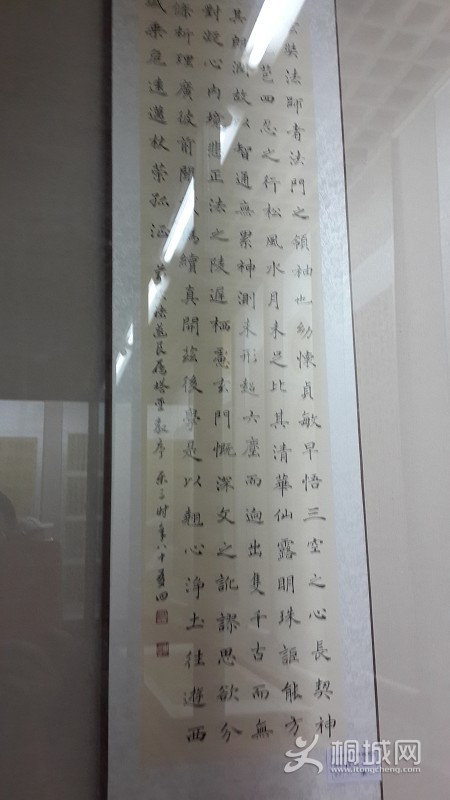 奘法師者法門之領袖也幼懷貞敏早悟三空之心長契神
苞四忍之行松風水月未足比其清華仙露明珠詎能方
其朗潤故智通無累神測未形超六塵而迥出隻千古而無
對凝心內境悲正法之陵遲栖慮玄門慨深文之訛謬思欲分
條析理廣彼前聞續真開茲後學是以翹心淨土往遊西
域乘危遠邁杖策孤征
時年八十
桐城网
www.itongcheng.com